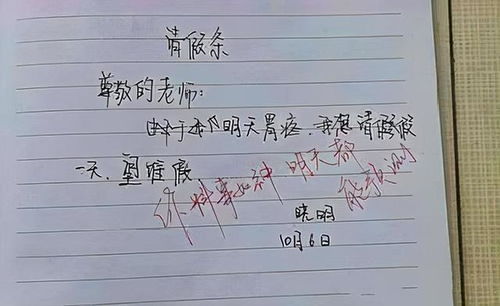 请假条
尊敬的老师:
由于我明天胃疼.我想请假假
一天.望准假
你料事如神 明天都
能预测
晓明
10月6日